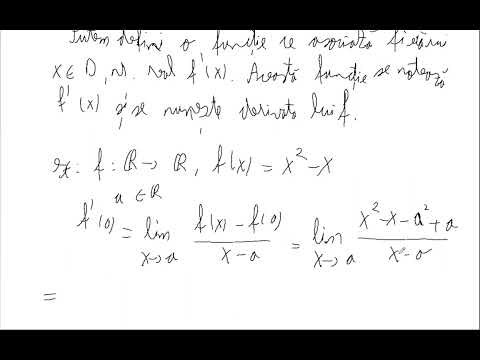 Putem defini o funcție ce asociată fiecărui
x ∈ D, nr. real f'(x). Această funcție se notează
f'(x) și se numește derivata lui f.
ex: f: ℝ → ℝ, f(x) = x² - x
a ∈ ℝ
f'(a) = lim x→a (f(x) - f(a))/(x - a) = lim x→a (x² - x - a² + a)/(x - a)
=